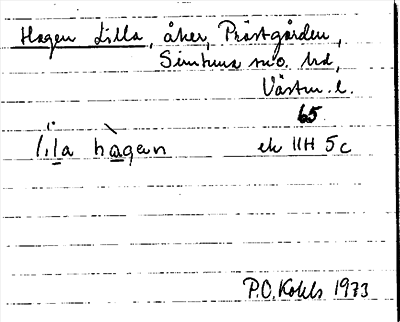 Hagen Lilla, åker, Prästgården,
Simtuna sn o. hd,
Västm. l.
65
lila hàgen
ek 11H 5c
P.O. Kohls 1973